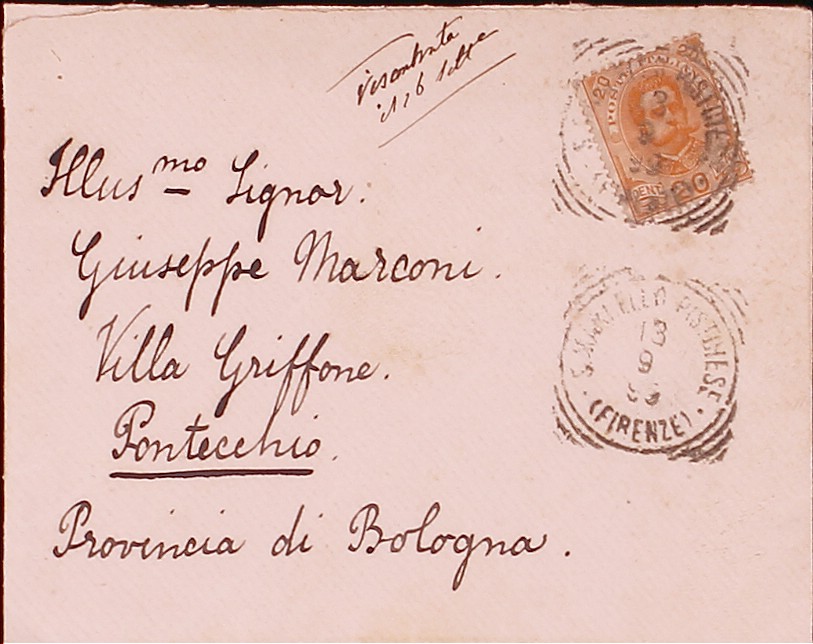 Riscontrata
il 26 Settre
20 20
POSTE ITALIANE
CENT. 20
Illusmo Signor.
Giuseppe Marconi.
Villa Griffone.
Pontecchio.
Provincia di Bologna.
S. MARCELLO PISTOIESE
13
9
99
(FIRENZE)